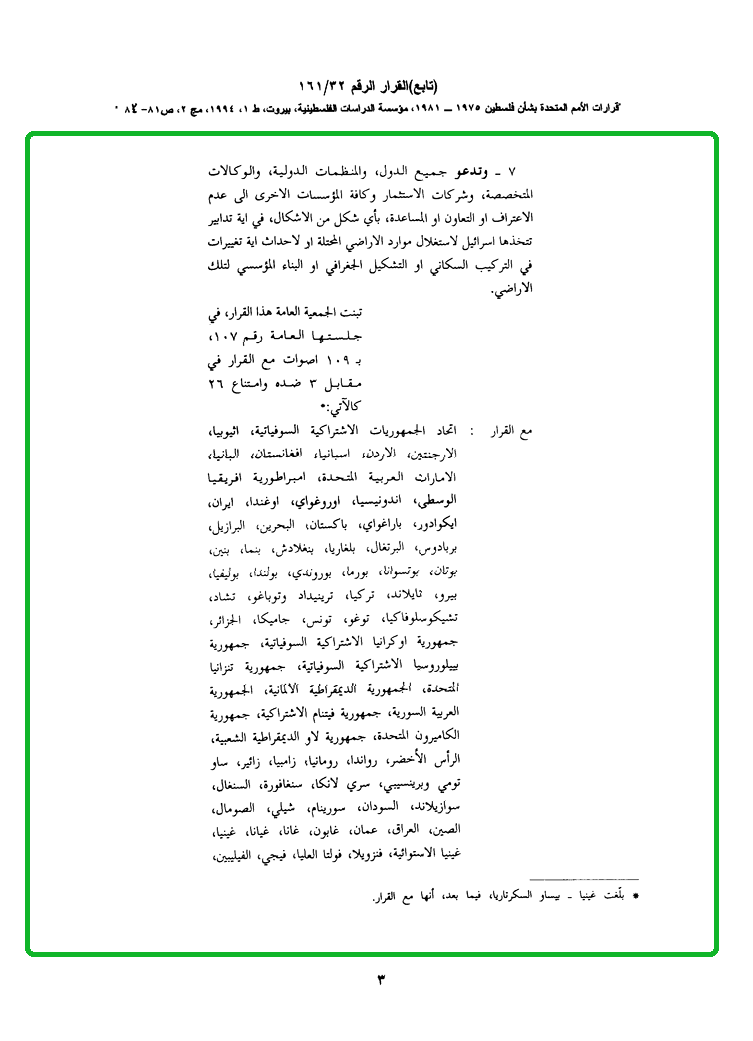 (تابع)القرار الرقم ١٦١/٣٢
قرارات الأمم المتحدة بشأن فلسطين ١٩٧٥ ــ ١٩٨١، مؤسسة الدراسات الفلسطينية، بيروت، ط ١، ١٩٩٤، مج ٢، ص٨١– ٨٤ .
٧ ـ وتدعو جميع الدول، والمنظمات الدولية، والوكالات
المتخصصة، وشركات الاستثمار وكافة المؤسسات الاخرى الى عدم
الاعتراف او التعاون او المساعدة، بأي شكل من الاشكال، في اية تدابير
تتخذها اسرائيل لاستغلال موارد الاراضي المحتلة او لاحداث اية تغييرات
في التركيب السكاني او التشكيل الجغرافي او البناء المؤسسي لتلك
الاراضي.
تبنت الجمعية العامة هذا القرار، في
جلستها العامة رقم ١٠٧،
بـ ١٠٩ اصوات مع القرار في
مقابل ٣ ضده وامتناع ٢٦
كالآتي:*
مع القرار : اتحاد الجمهوريات الاشتراكية السوفياتية، اثيوبيا،
الارجنتين، الاردن، اسبانيا، افغانستان، البانيا،
الامارات العربية المتحدة، امبراطورية افريقيا
الوسطى، اندونيسيا، اوروغواي، اوغندا، ايران،
ايكوادور، باراغواي، باكستان، البحرين، البرازيل،
بربادوس، البرتغال، بلغاريا، بنغلادش، بنما، بنين،
بوتان، بوتسوانا، بورما، بوروندي، بولندا، بوليفيا،
بيرو، تايلاند، تركيا، ترينيداد وتوباغو، تشاد،
تشيكوسلوفاكيا، توغو، تونس، جاميكا، الجزائر،
جمهورية اوكرانيا الاشتراكية السوفياتية، جمهورية
بييلوروسيا الاشتراكية السوفياتية، جمهورية تنزانيا
المتحدة، الجمهورية الديمقراطية الالمانية، الجمهورية
العربية السورية، جمهورية فيتنام الاشتراكية، جمهورية
الكاميرون المتحدة، جمهورية لاو الديمقراطية الشعبية،
الرأس الأخضر، رواندا، رومانيا، زامبيا، زائير، ساو
تومي وبرينسيبي، سري لانكا، سنغافورة، السنغال،
سوازيلاند، السودان، سورينام، شيلي، الصومال،
الصين، العراق، عمان، غابون، غانا، غيانا، غينيا،
غينيا الاستوائية، فنزويلا، فولتا العليا، فيجي، الفيليبين،
* بلّغت غينيا ـ بيساو السكرتاريا، فيما بعد، أنها مع القرار.
٣